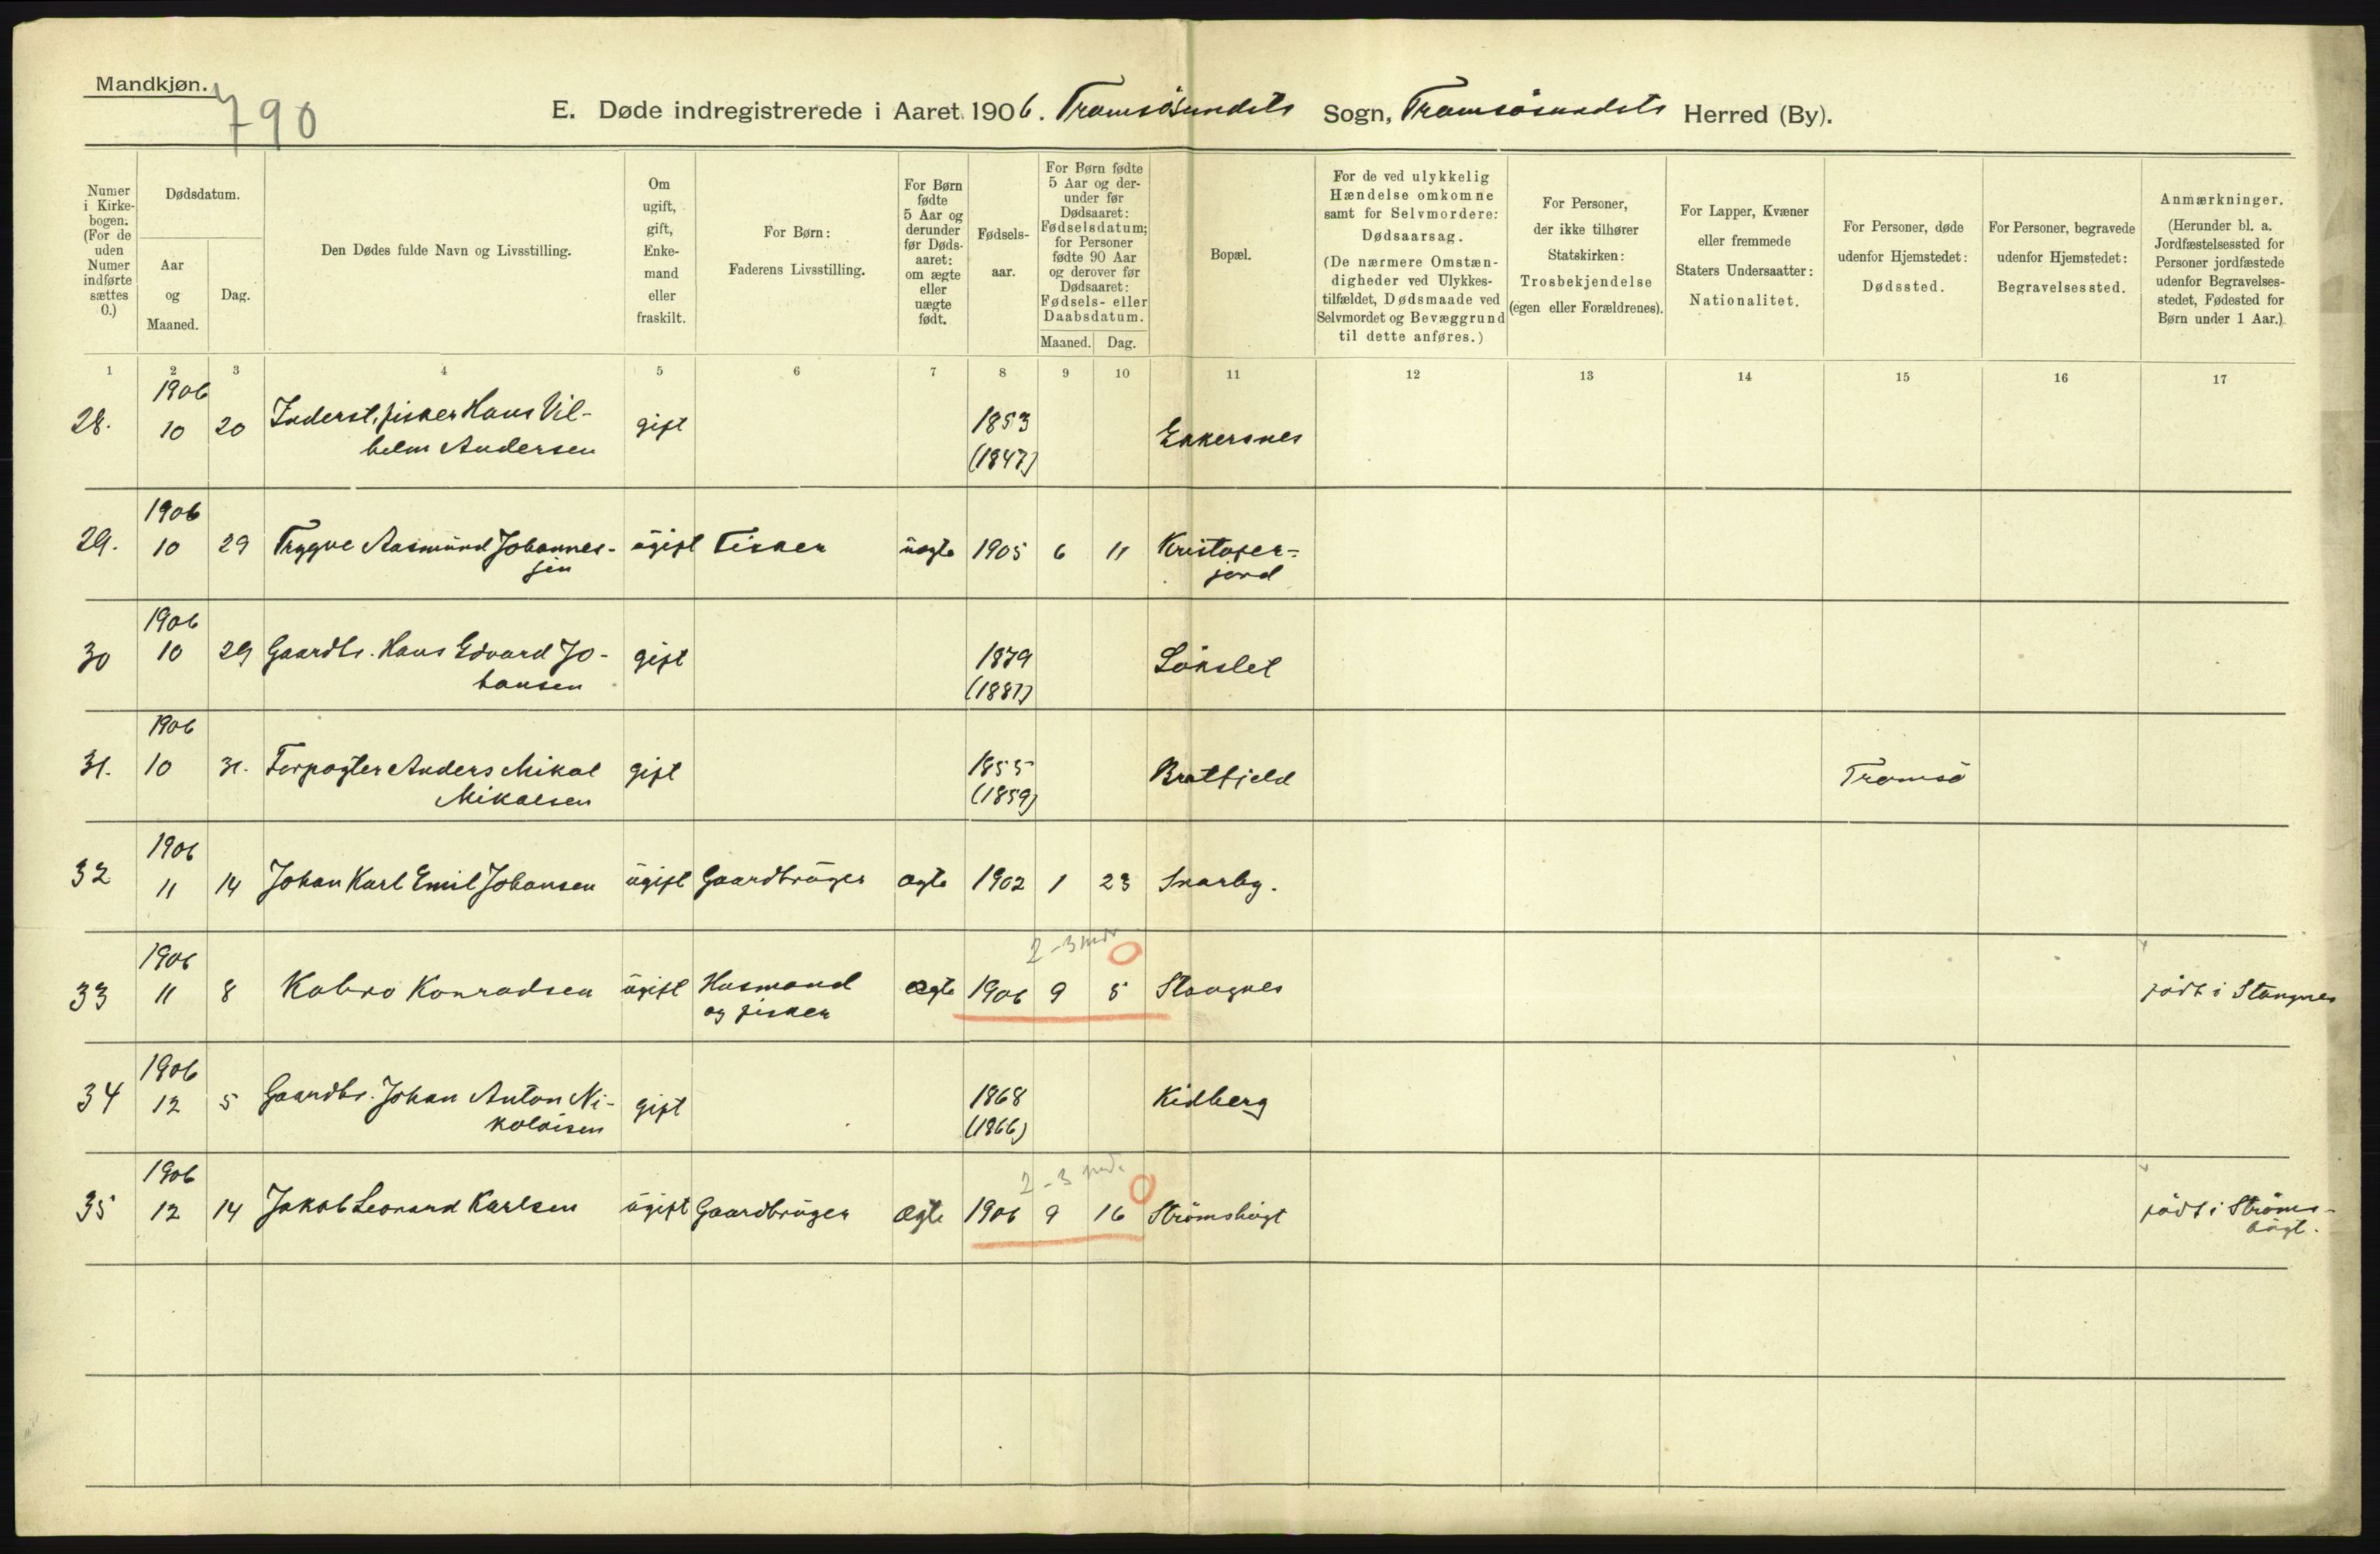 Mandkjøn.
790
E. Døde indregistrerede i Aaret 1906. Tromsösundets Sogn, Tromsösundets Herred (By).
Numer i Kirke-bogen. (For de uden Numer indførte sættes 0.)
Dødsdatum.
Aar og Maaned.
Dag.
Den Dødes fulde Navn og Livsstilling.
Om ugift, gift, Enke-mand eller fraskilt.
For Børn: Faderens Livsstilling.
For Børn fødte 5 Aar og derunder før Døds-aaret: om ægte eller uægte født.
Fødsels-aar.
For Børn fødte 5 Aar og der-under før Dødsaaret: Fødselsdatum; for Personer fødte 90 Aar og derover før Dødsaaret: Fødsels- eller Daabsdatum.
Maaned. Dag.
Bopæl.
For de ved ulykkelig Hændelse omkomne samt for Selvmordere: Dødsaarsag. (De nærmere Omstæn-digheder ved Ulykkes-tilfældet, Dødsmaade ved Selvmordet og Bevæggrund til dette anføres.)
For Personer, der ikke tilhører Statskirken: Trosbekjendelse (egen eller Forældrenes).
For Lapper, Kvæner eller fremmede Staters Undersaatter: Nationalitet.
For Personer, døde udenfor Hjemstedet: Dødssted.
For Personer, begravede udenfor Hjemstedet: Begravelsessted.
Anmærkninger. (Herunder bl. a. Jordfæstelsessted for Personer jordfæstede udenfor Begravelses-stedet, Fødested for Børn under 1 Aar.)
1 2 3 4 5 6 7 8 9 10 11 12 13 14 15 16 17
1906
28. 10 20 Inderst, fisker Hans Vil- gift 1853 Ekkersnes
helm Andersen (1847)
1906
29. 10 29 Trygve Aasmund Johannes- ugift Fisker uægte 1905 6 11 Kristofer-
sen jord
1906
30 10 29 Gaardbr. Hans Edvard Jo- gift 1879 Lökslet
hansen (1881)
1906
31. 10 31. Forpagter Anders Mikal gift 1855 Bratfjeld Tromsö
Mikalsen (1859)
1906
32 11 14 Johan Karl Emil Johansen ugift Gaardbruger ægte 1902 1 23 Snarby.
1906 2-3 mdr 0
33 11 8 Kabro Konradsen ugift Husmand ægte 1906 9 5 Stangnes född i Stangnes
og fisker
1906
34 12 5 Gaardbr. Johan Anton Ni- gift 1868 Kidberg
kolaisen (1866)
1906 2-3 md. 0
35 12 14 Jakob Leonard Karlsen ugift Gaardbruger ægte 1906 9 16 Strömshögt född i Ströms-
högt.